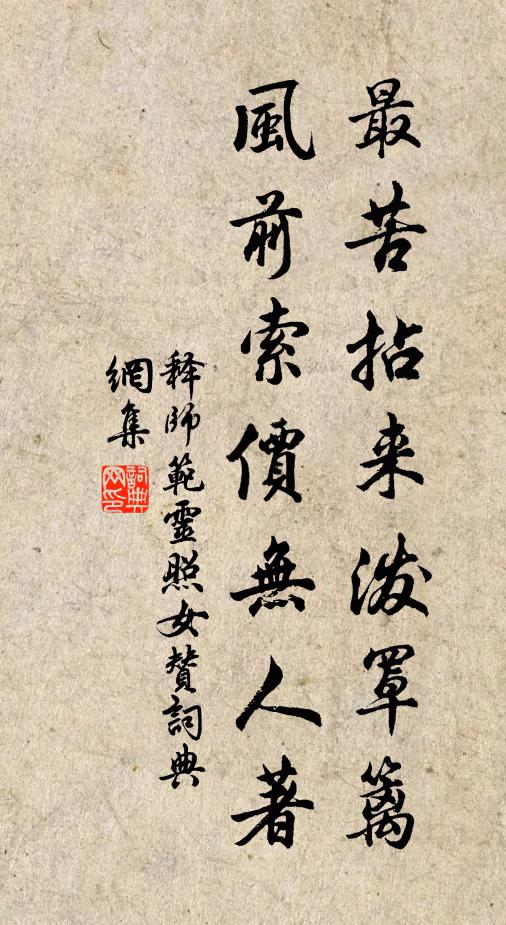 最苦拈来泼罩篱
風前索價無人著
释師範靈照女贊詞典
網集
詞典网印